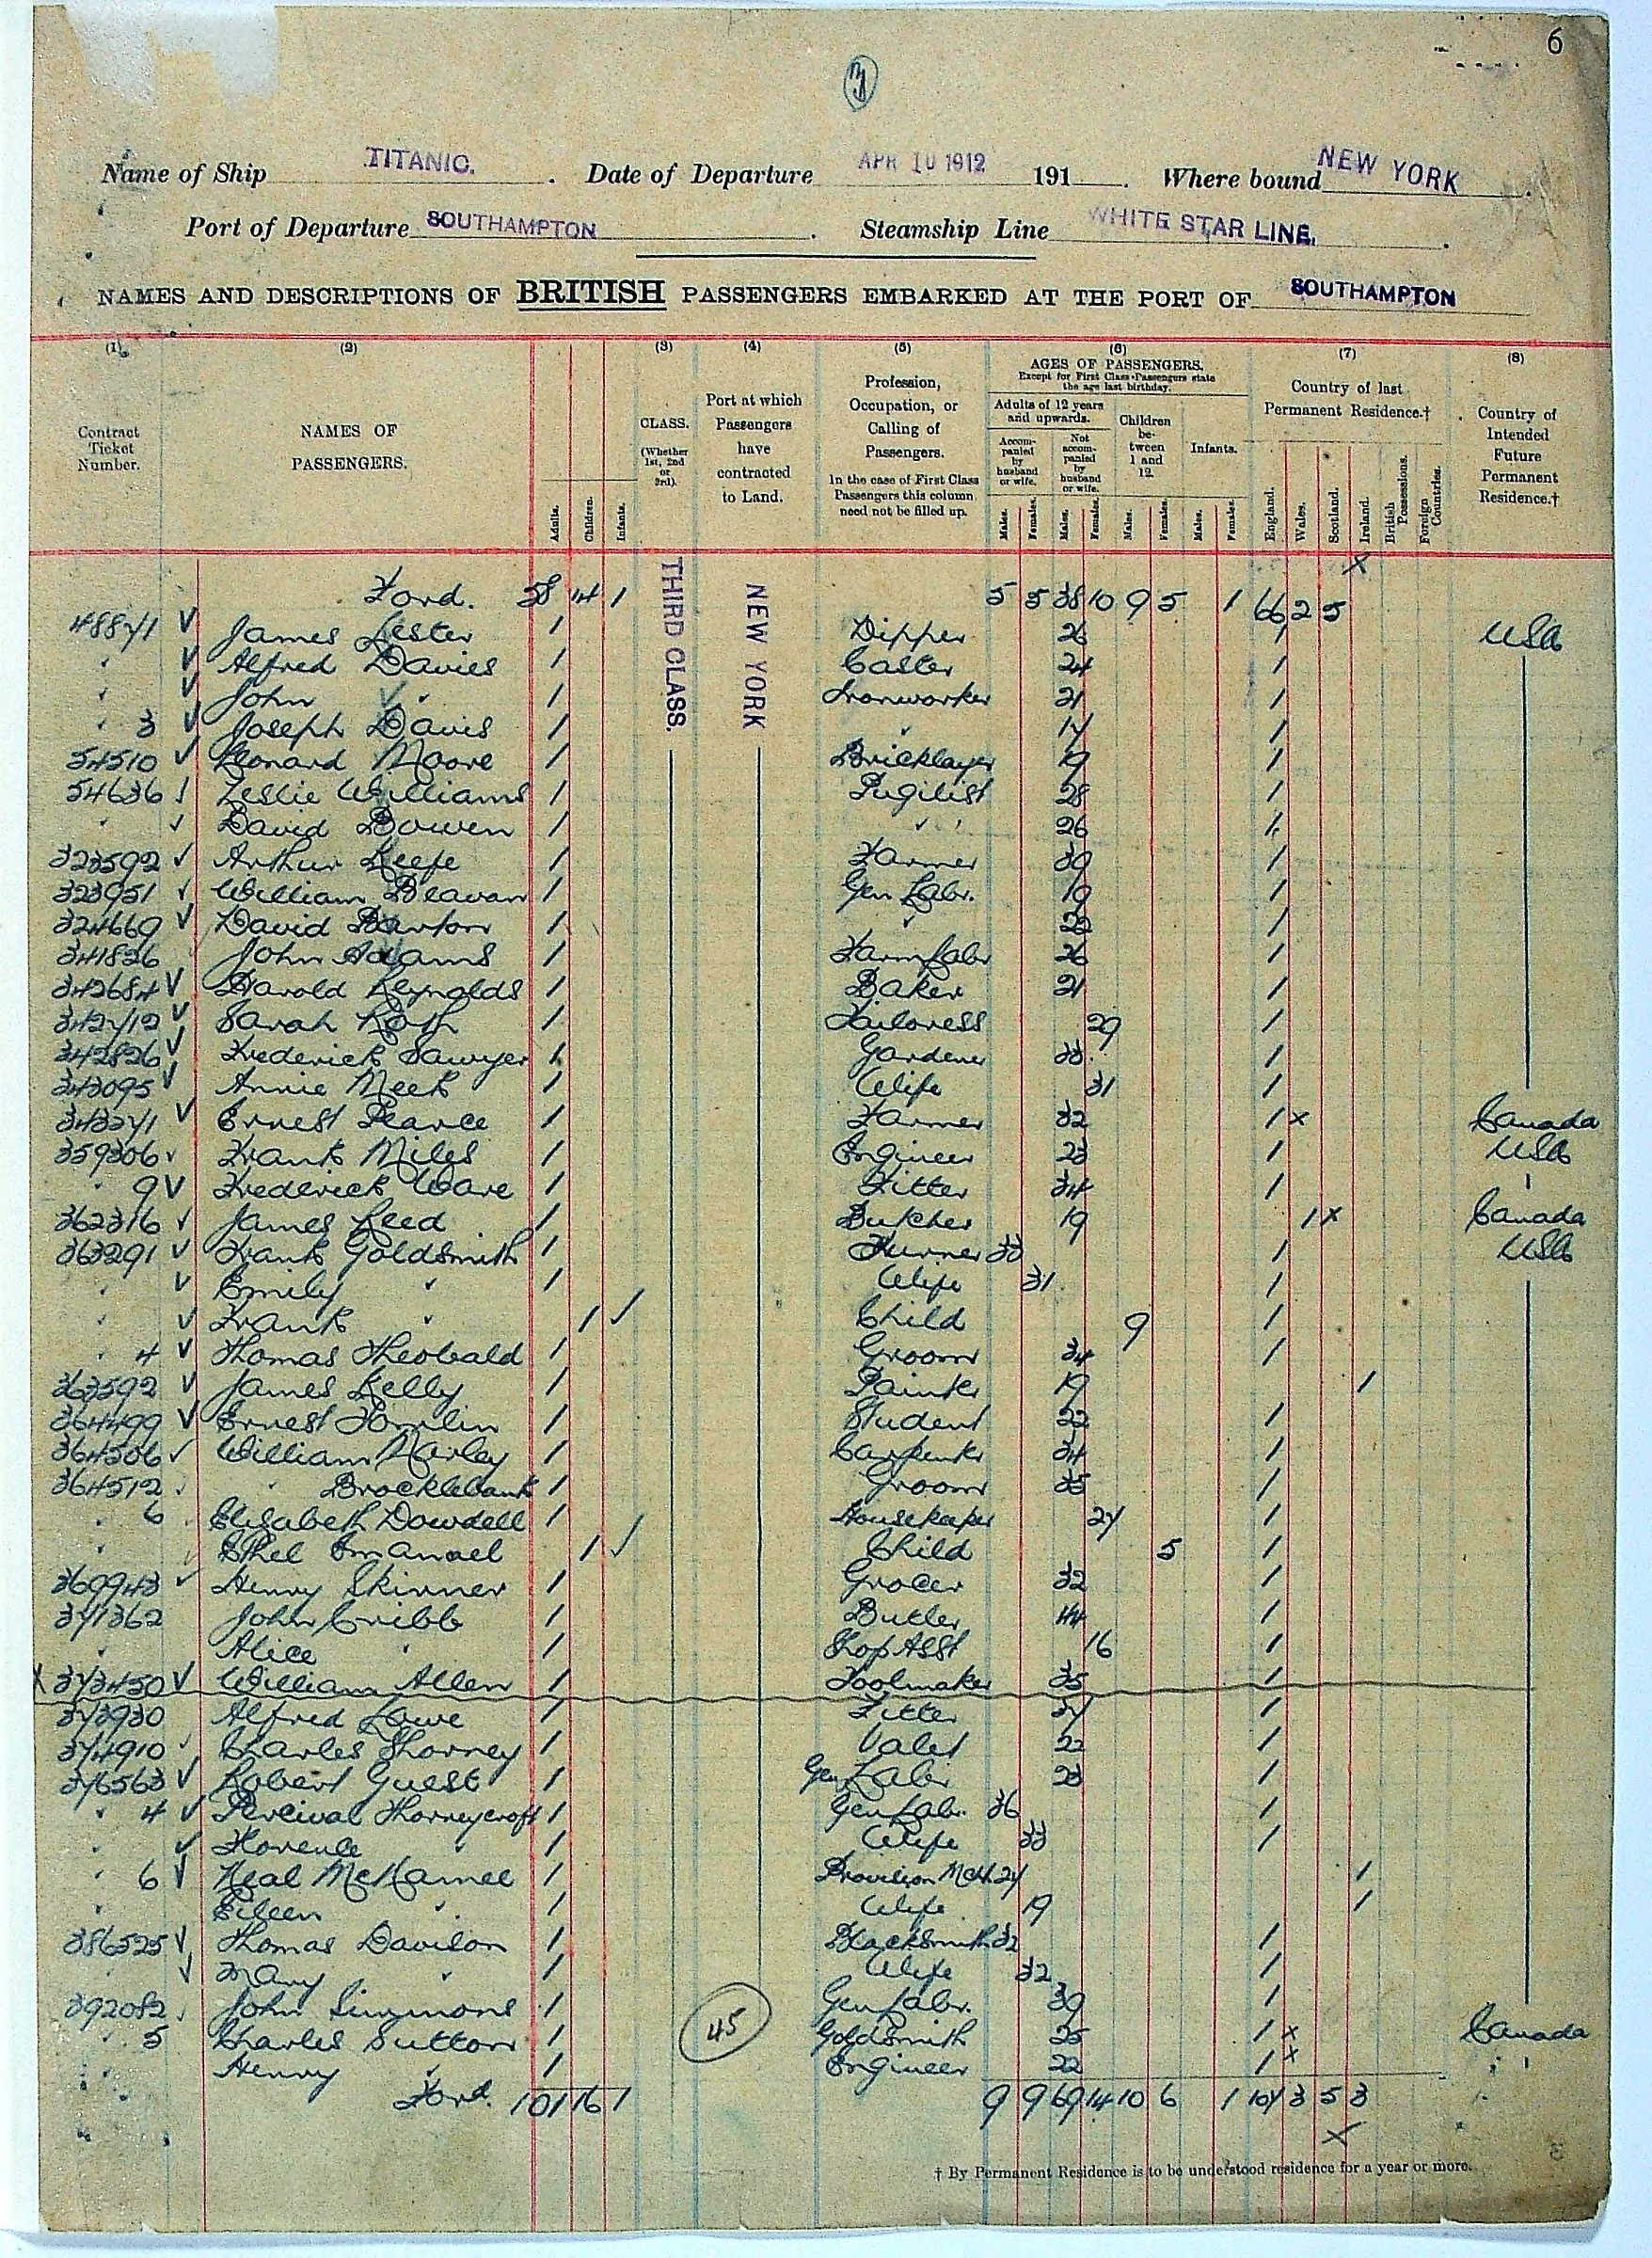 6
3
Name of Ship TITANIC. Date of Departure APR 10 1912 191 . Where bound NEW YORK
Port of Departure SOUTHAMPTON . Steamship Line WHITE STAR LINE.
NAMES AND DESCRIPTIONS OF BRITISH PASSENGERS EMBARKED AT THE PORT OF SOUTHAMPTON
(1) (2) (3) (4) (5) (6) (7) (8)
Contract Ticket Number.
NAMES OF PASSENGERS.
Adults. Children. Infants.
CLASS. (Whether 1st, 2nd or 3rd).
Port at which Passengers have contracted to Land.
Profession, Occupation, or Calling of Passengers.
In the case of First Class Passengers this column need not be filled up.
AGES OF PASSENGERS.
Except for First Class Passengers state the age last birthday.
Adults of 12 years and upwards.
Accompanied by husband or wife.
Not accompanied by husband or wife.
Children between 1 and 12.
Infants.
Males. Females. Males. Females. Males. Females. Males. Females.
Country of last Permanent Residence.†
England. Wales. Scotland. Ireland. British Possessions. Foreign Countries.
Country of Intended Future Permanent Residence.†
THIRD CLASS.
NEW YORK
x
Ford. 58 14 1 5 5 38 10 9 5 1 66 2 5
48871 James Lester 1 Dipper 26 1 USA
" Alfred Davies 1 Caster 24 1
" John " 1 Ironworker 21 1
" 3 Joseph Davis 1 " 17 1
54510 Leonard Moore 1 Bricklayer 19 1
54636 Leslie Williams 1 Pugilist 28 1
" David Bowen 1 " 26 1
323592 Arthur Keefe 1 Farmer 39 1
323951 William Beavan 1 Gen Labr. 19 1
324669 David Barton 1 " 22 1
341826 John Adams 1 Farm Labr 26 1
342684 Harold Reynolds 1 Baker 21 1
342712 Sarah Roth 1 Tailoress 29 1
342826 Frederick Sawyer 1 Gardener 33 1
343095 Annie Meek 1 Wife 31 1
343271 Ernest Pearce 1 Farmer 32 1 x Canada
359306 Frank Miles 1 Engineer 23 1 USA
" 9 Frederick Ware 1 Fitter 34 1 "
362316 James Reed 1 Butcher 19 1 x Canada
363291 Frank Goldsmith 1 Turner 33 1 USA
" Emily " 1 Wife 31 1
" Frank " 1 Child 9 1
" 4 Thomas Theobald 1 Groom 34 1
363592 James Kelly 1 Painter 19 1
364499 Ernest Tomlin 1 Student 22 1
364506 William Morley 1 Carpenter 34 1
364512 " Brocklebank 1 Groom 35 1
" 6 Elisabeth Dowdell 1 Housekeeper 27 1
" Ethel Emanuel 1 Child 5 1
369943 Henry Skinner 1 Grocer 32 1
371362 John Cribb 1 Butler 44 1
" Alice " 1 Shop Asst 16 1
x 373450 William Allen 1 Toolmaker 35 1
373930 Alfred Lowe 1 Fitter 37 1
374910 Charles Thorney 1 Valet 22 1
376563 Robert Guest 1 Gen Labr 23 1
" 4 Percival Thorneycroft 1 Gen Labr. 36 1
" Florence " 1 Wife 33 1
" 6 Neal McNamee 1 Provision Mcht. 27 1
" Eileen " 1 Wife 19 1
386525 Thomas Davison 1 Blacksmith 32 1
" Mary " 1 Wife 32 1
392082 John Simmons 1 Gen Labr. 39 1
" 5 Charles Sutton 1 Goldsmith 25 1 x Canada
" Henry " 1 Engineer 22 1 x "
45
Ford. 101 16 1 9 9 69 14 10 6 1 107 3 5 3
x
† By Permanent Residence is to be understood residence for a year or more.